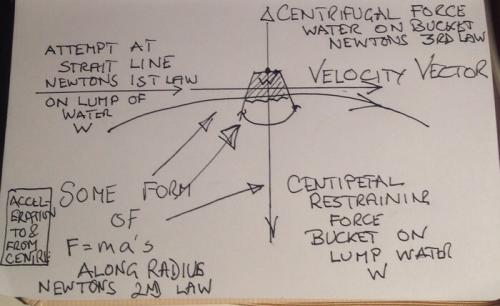 CENTRIFUGAL FORCE
WATER ON BUCKET
NEWTONS 3RD LAW
ATTEMPT AT
STRAIT LINE
NEWTONS 1ST LAW
ON LUMP OF
WATER
W
VELOCITY VECTOR
W
SOME FORM
OF
F=ma's
ALONG RADIUS
NEWTONS 2ND LAW
ACCEL-
ERATION
TO &
FROM
CENTRE
CENTIPETAL
RESTRAINING
FORCE
BUCKET ON
LUMP WATER
W